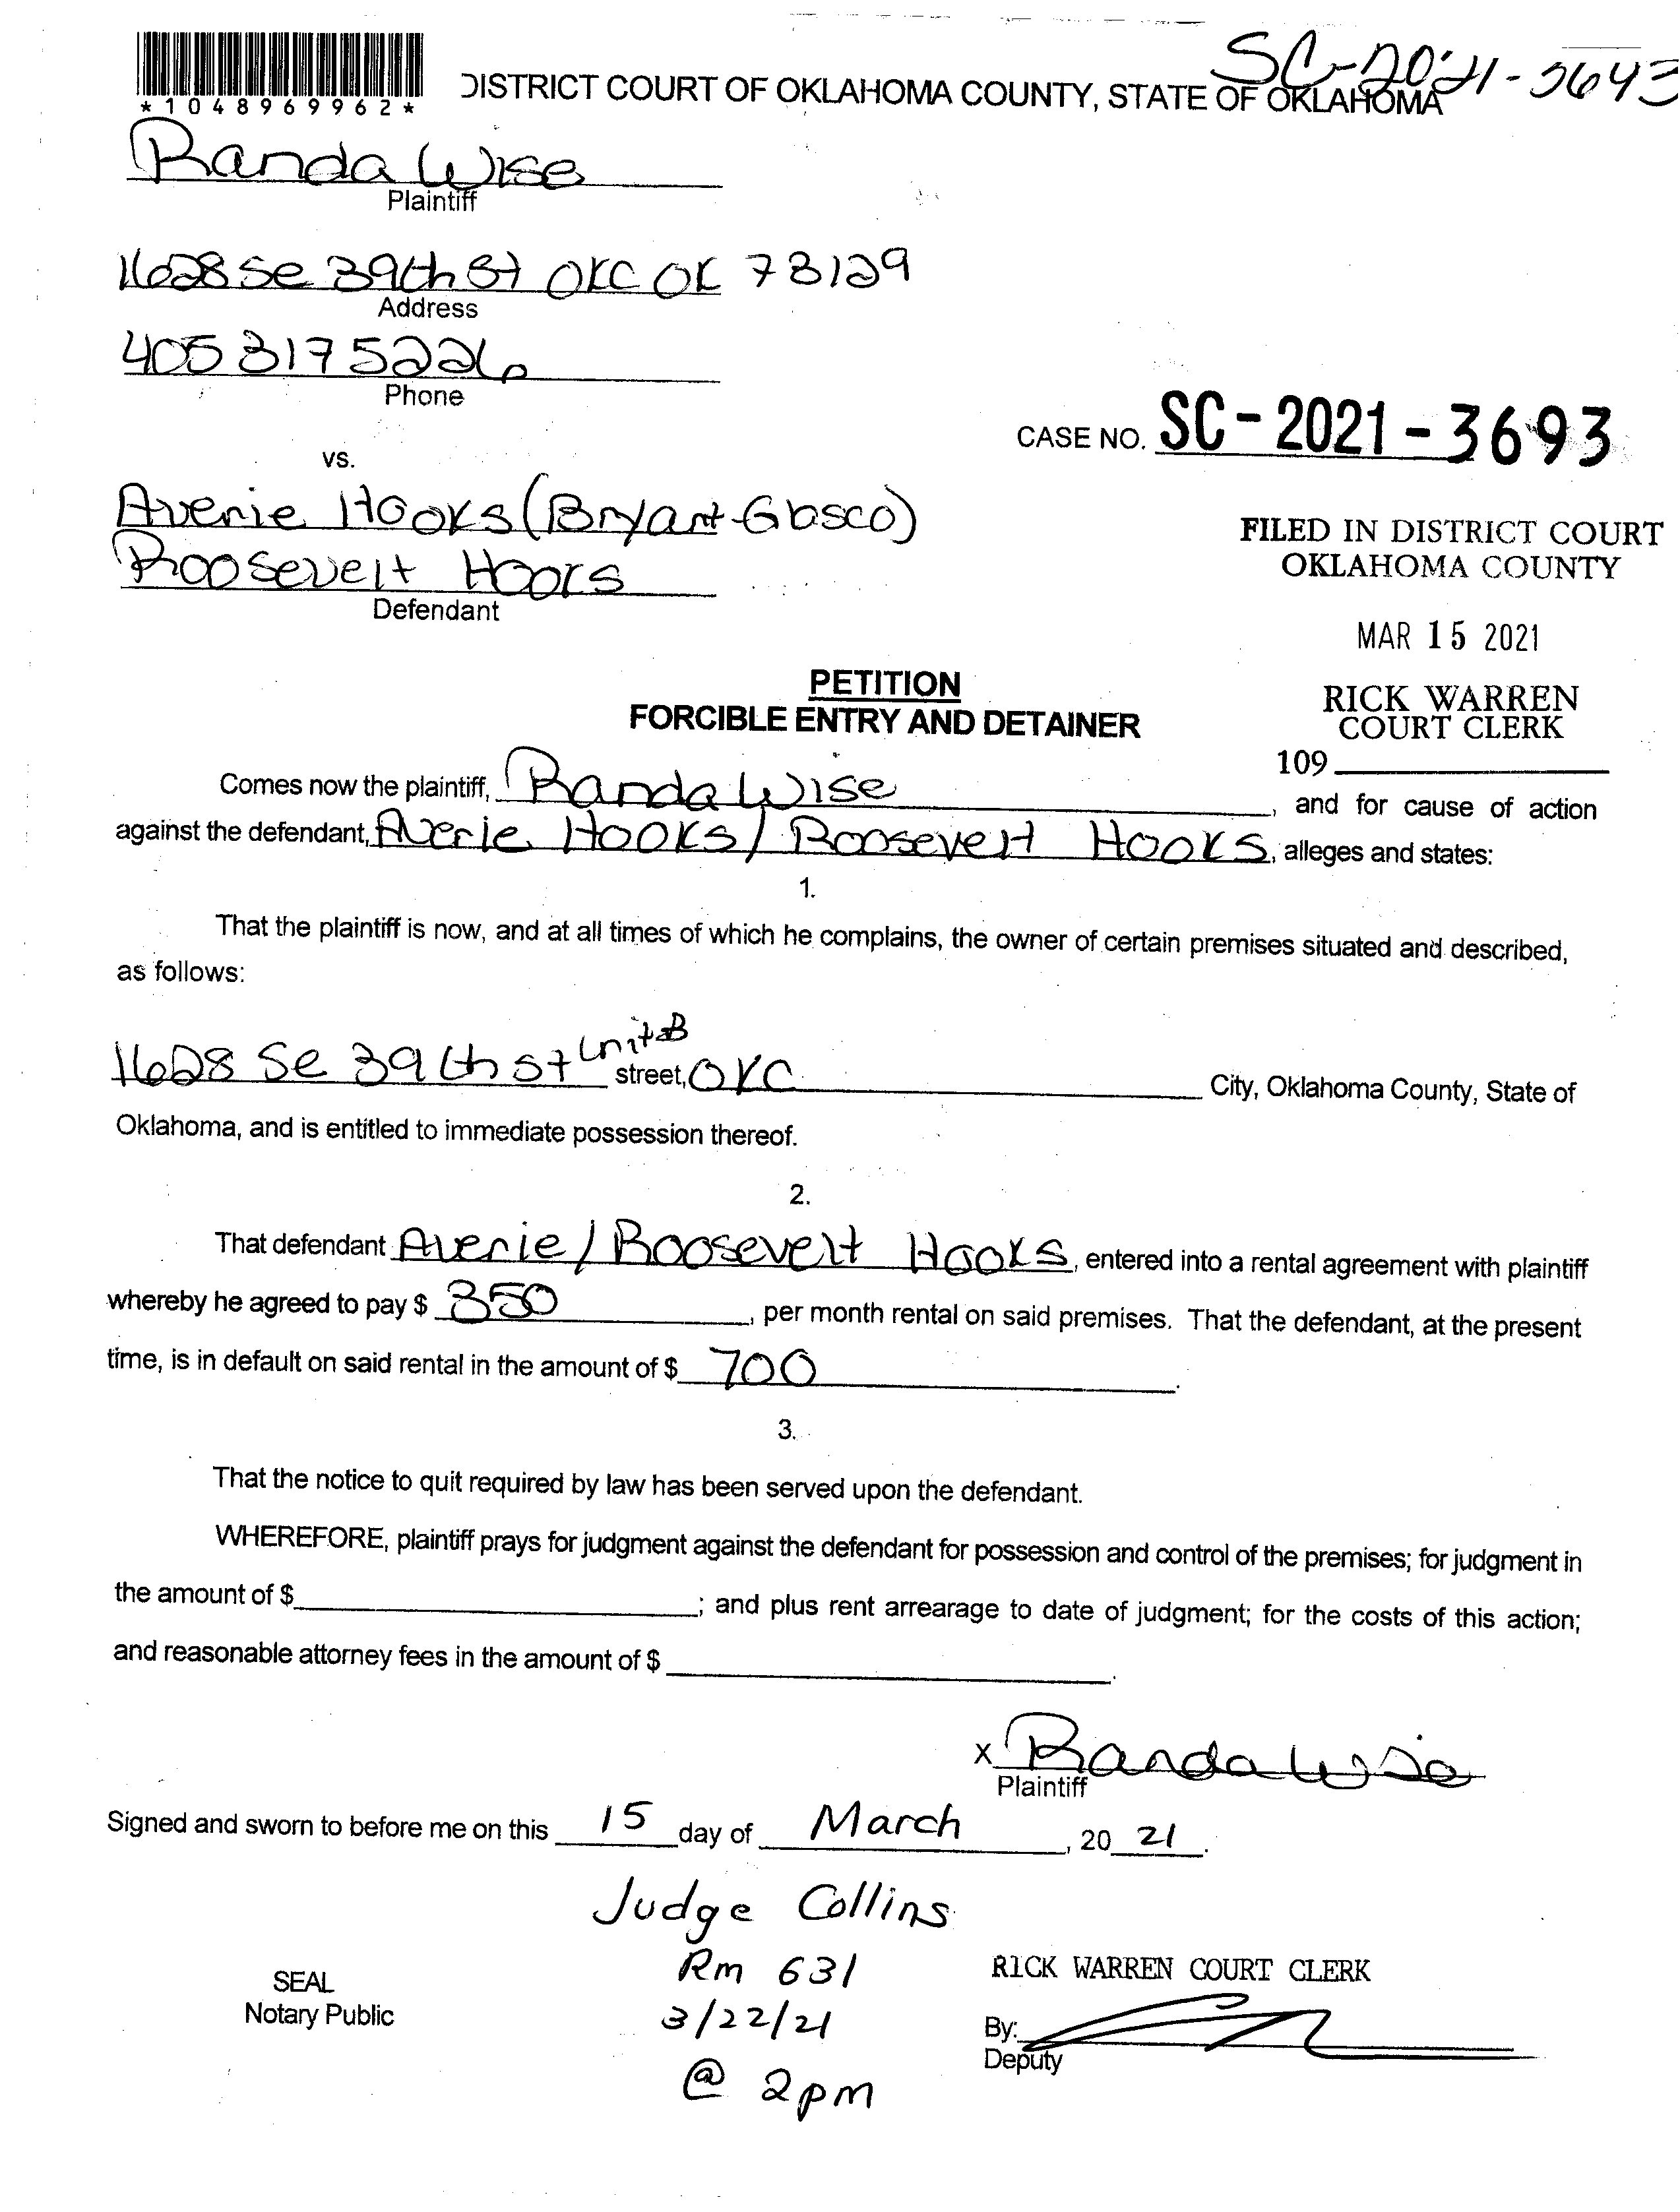 SC-2021-3643
*1048969962*
DISTRICT COURT OF OKLAHOMA COUNTY, STATE OF OKLAHOMA
Randa Wise
Plaintiff
1628 Se 39th St OKC OK 73129
Address
405 317 5226
Phone
CASE NO. SC-2021-3693
vs.
Averie Hooks (Bryant-Glasco)
Roosevelt Hooks
Defendant
FILED IN DISTRICT COURT
OKLAHOMA COUNTY
MAR 15 2021
RICK WARREN
COURT CLERK
109
PETITION
FORCIBLE ENTRY AND DETAINER
Comes now the plaintiff, Randa Wise, and for cause of action
against the defendant, Averie Hooks / Roosevelt Hooks, alleges and states:
1.
That the plaintiff is now, and at all times of which he complains, the owner of certain premises situated and described,
as follows:
1628 Se 39th St Unit B street, OKC City, Oklahoma County, State of
Oklahoma, and is entitled to immediate possession thereof.
2.
That defendant Averie / Roosevelt Hooks, entered into a rental agreement with plaintiff
whereby he agreed to pay $ 350, per month rental on said premises. That the defendant, at the present
time, is in default on said rental in the amount of $ 700.
3.
That the notice to quit required by law has been served upon the defendant.
WHEREFORE, plaintiff prays for judgment against the defendant for possession and control of the premises; for judgment in
the amount of $ ; and plus rent arrearage to date of judgment; for the costs of this action;
and reasonable attorney fees in the amount of $ .
x Randa Wise
Plaintiff
Signed and sworn to before me on this 15 day of March, 20 21.
Judge Collins
Rm 631
3/22/21
@ 2pm
SEAL
Notary Public
RICK WARREN COURT CLERK
By:
Deputy